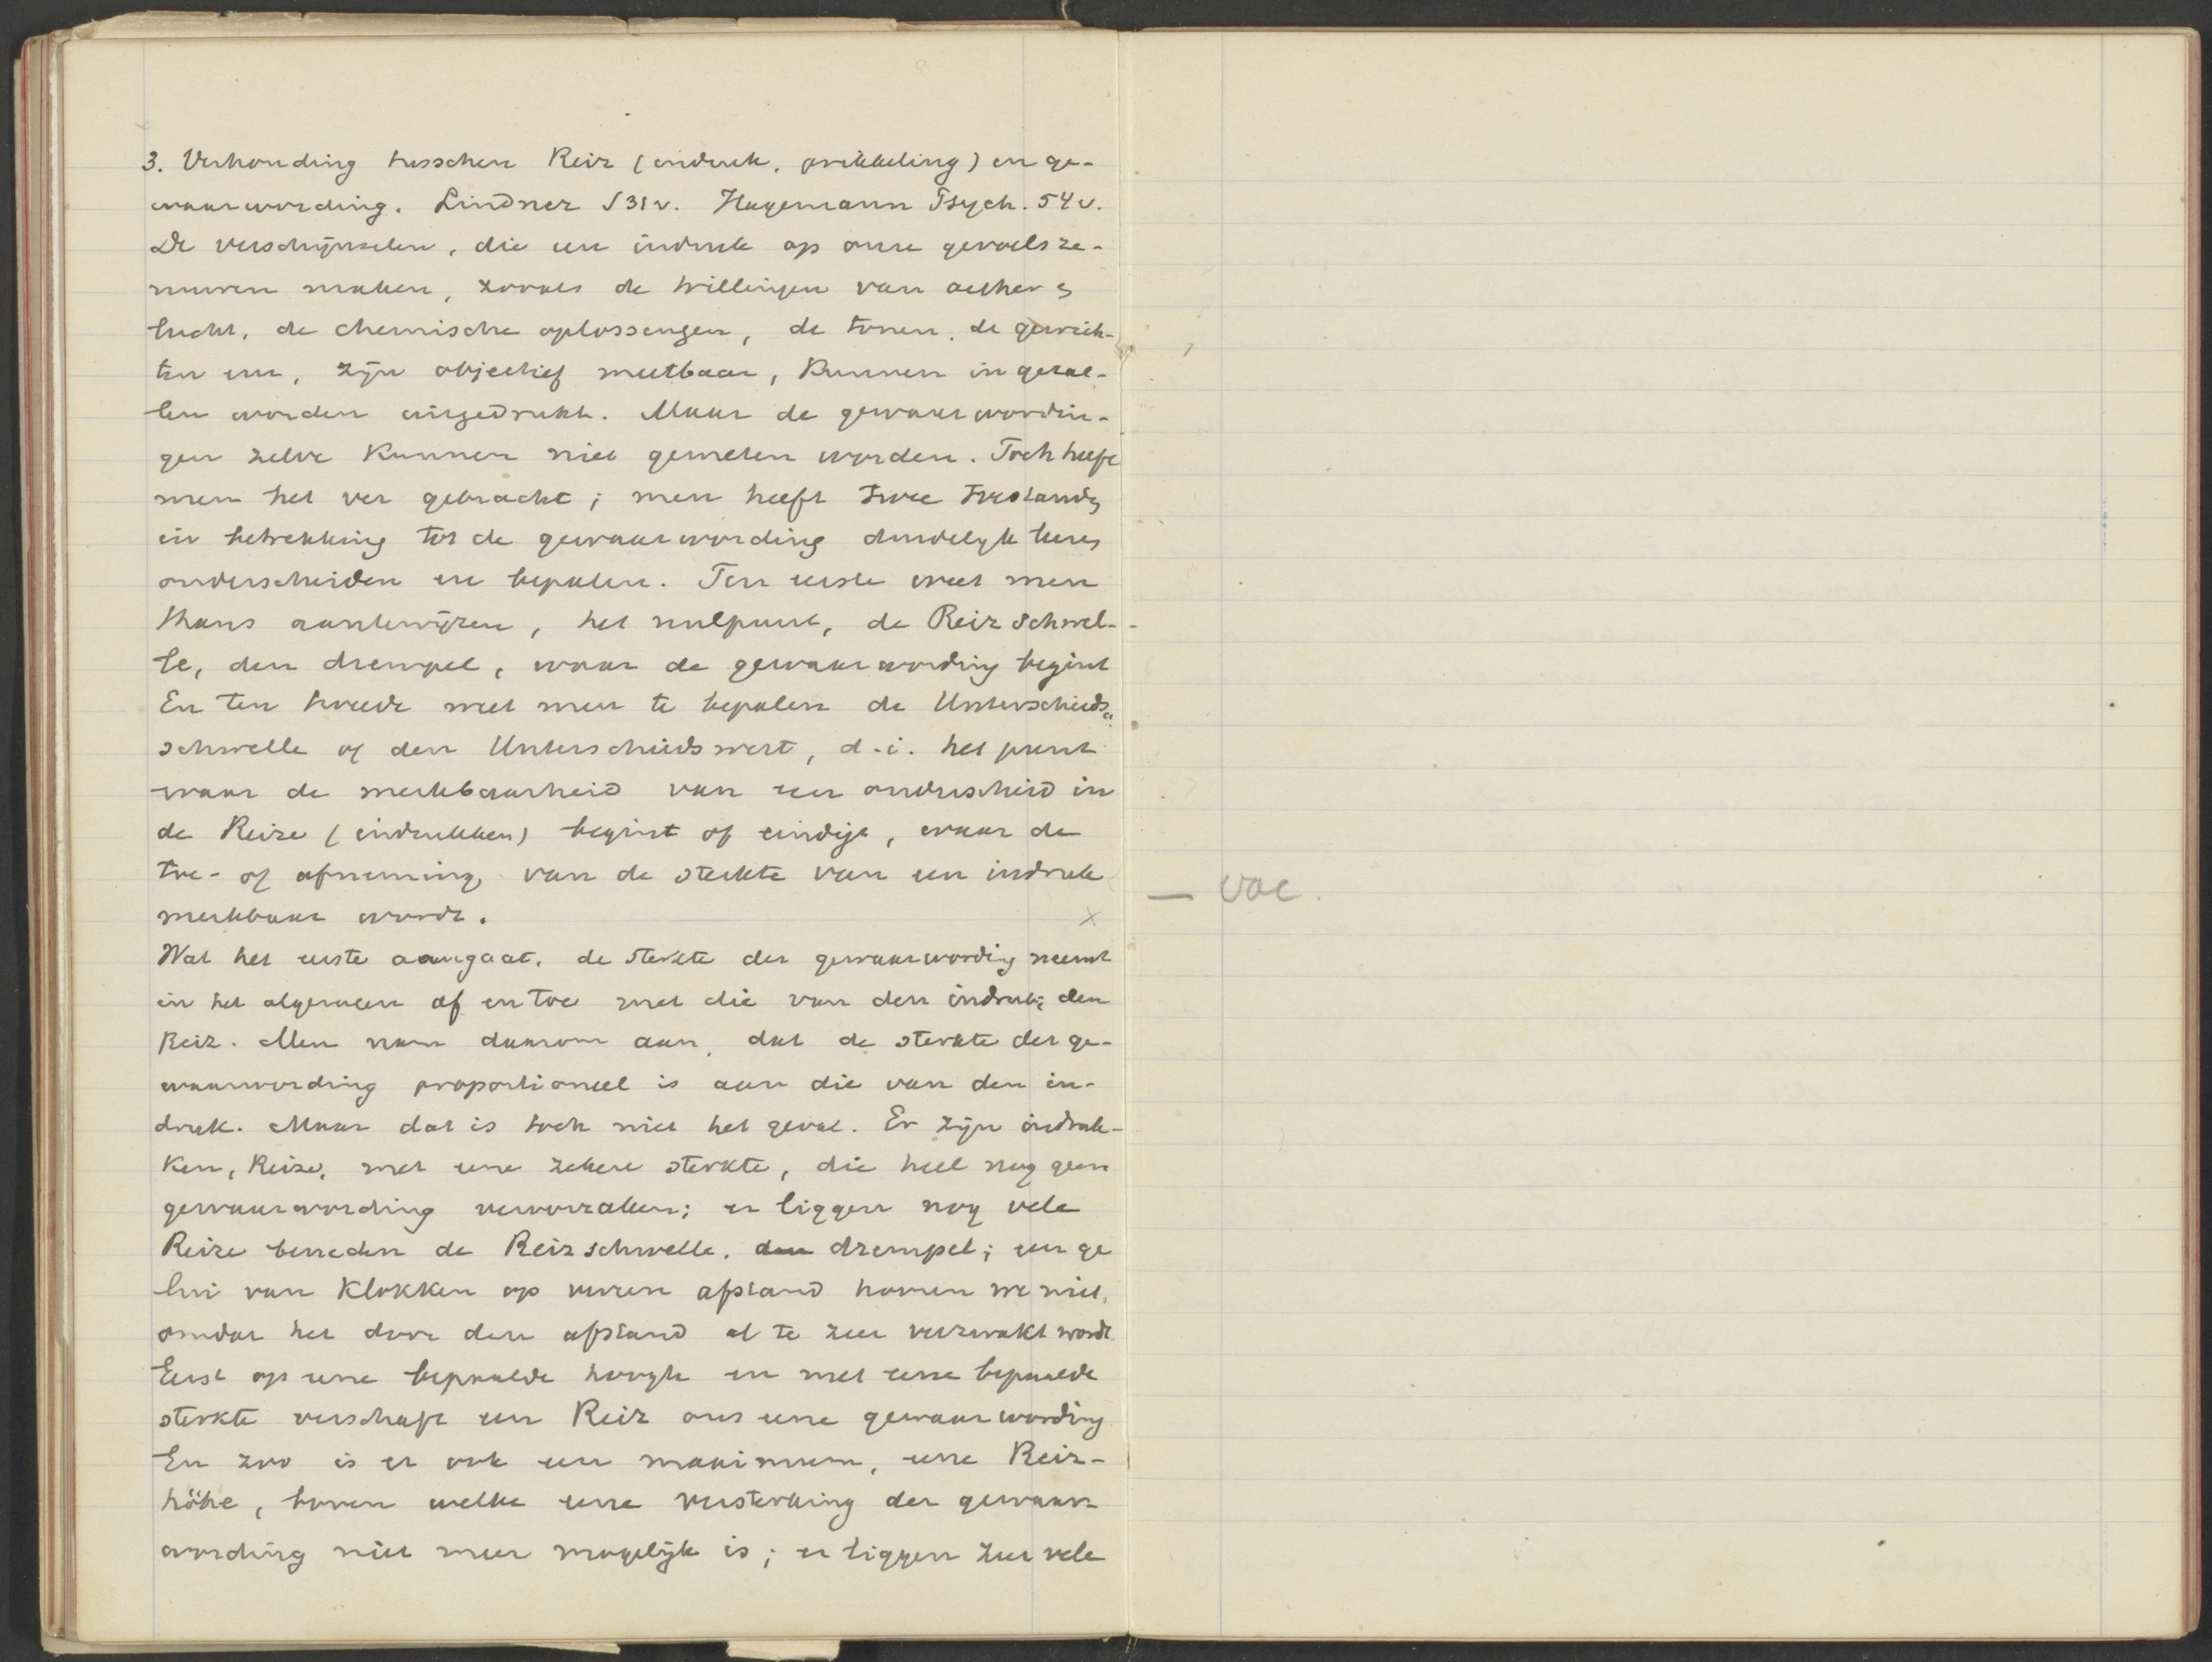 3. Verhouding tusschen Reiz (indruk, prikkeling) en ge-
waarwording. Lindner §31v. Hagemann Psych. 54v.
De verschijnselen, die een indruk op onze gevoelsze-
nuwen maken, zooals de trillingen van aether en
lucht, de chemische oplossingen, de tonen, de gewich-
ten enz, zijn objectief meetbaar, kunnen in getal-
len worden uitgedrukt. Maar de gewaarwordin-
gen zelve kunnen niet gemeten worden. Toch heeft
men het ver gebracht; men heeft twee toestanden
in betrekking tot de gewaarwording duidelijk leeren
onderscheiden en bepalen. Ten eerste weet men
thans aantewijzen, het nulpunt, de Reizschwel-
le, den drempel, waar de gewaarwording begint
En ten tweede weet men te bepalen de Unterschieds-
schwelle of den Unterschiedswert, d.i. het punt
waar de merkbaarheid van een onderscheid in
de Reize (indrukken) begint of eindigt, waar de
toe- of afneming van de sterkte van een indruk
merkbaar wordt. x
Wat het eerste aangaat, de sterkte der gewaarwording neemt
in het algemeen af en toe met die van den indruk, den
Reiz. Men nam daarom aan, dat de sterkte der ge-
waarwording proportioneel is aan die van den in-
druk. Maar dat is toch niet het geval. Er zijn indruk-
ken, Reize, met eene zekere sterkte, die heel nog geen
gewaarwording veroorzaken; er liggen nog vele
Reize beneden de Reizschwelle, den drempel; een ge
lui van klokken op verren afstand hooren we niet,
omdat het door den afstand al te zeer verzwakt wordt
Eerst op eene bepaalde hoogte en met eene bepaalde
sterkte verschaft een Reiz ons eene gewaarwording
En zoo is er ook een maximum, eene Reiz-
höhe, boven welke eene versterking der gewaar-
wording niet meer mogelijk is; er liggen zeer vele
— voe.